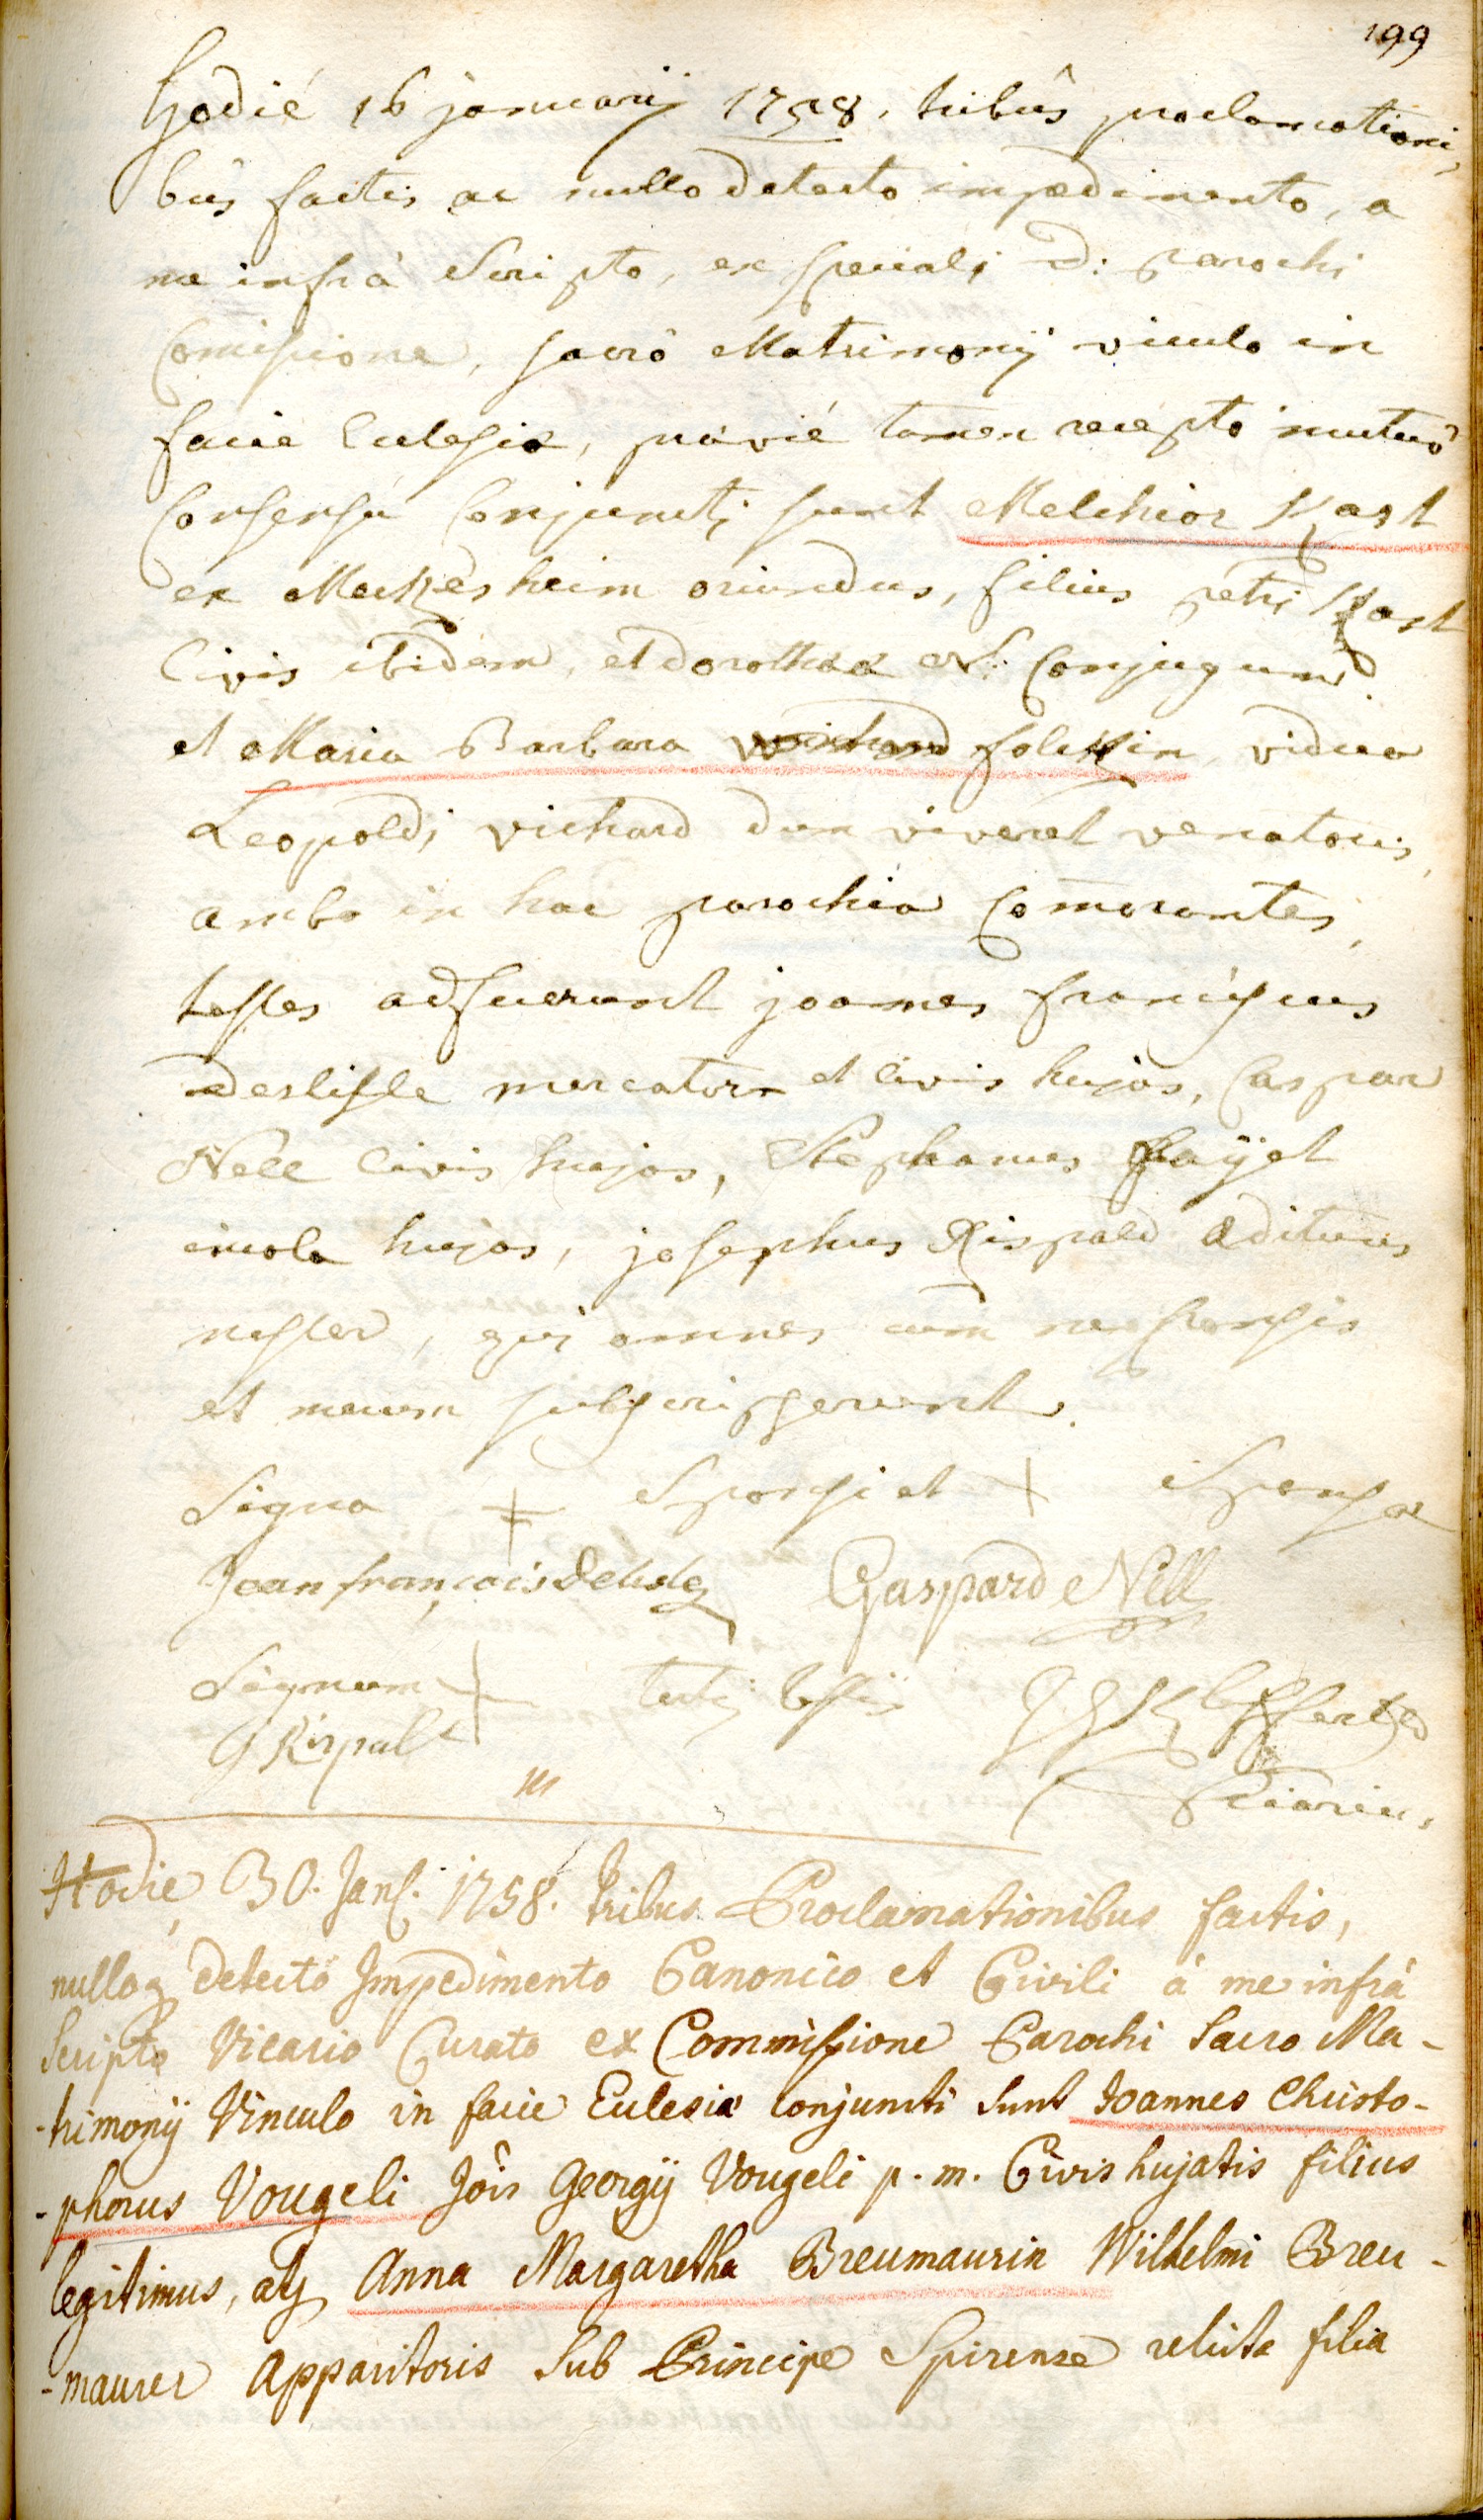 199
Hodié 16 januarij 1758, tribûs proclamationi,
bus factis ac nullo detecto impedimento, a
me infrà Scripto, ex speciali D: parochi
Comissione, sacrô Matrimonij viculo in
facie Eclesiæ, prævié tamen recepto mutuô
Consensu Conjuncti sunt Melchior Kast
ex Merkesheim oriundus, filius petri Kast
Civis ibidem, et dorotheæ N: Conjugum
et Maria Barbara folckin, vidua
Leopoldi vichard dum viveret venatoris,
ambo in hac parochia Comorantes,
testes adfuerunt joannes franciscus
deslisle mercator et civis hujas, Caspar
Nell Civis hujas, Stephanus
incola hujas, josephus Kispald Ædituus
noster, qui omnes cum neosponsis
et mecum subscripserunt.
Signa + Sponsi et + Sponsæ
Jean françois Delisle Gaspard Nell
Signum + tertij testis
J Kirpalt Vicarius
Hodie 30. Jan. 1758. tribus Proclamationibus factis,
nulloq detecto Impedimento Canonico et Civili à me infrà
Scripto Vicario Curato ex Commissione Parochi Sacro Ma-
-trimonij Vinculo in facie Eclesiæ conjuncti sunt Joannes Christo-
-phorus Vougeli Jôis Georgij Vougeli p. m. Civis hujatis filius
legitimus, atq Anna Margaretha Breumaurin Wilhelmi Breu-
-maurer Apparitoris Sub Principe Spirense relicta filia